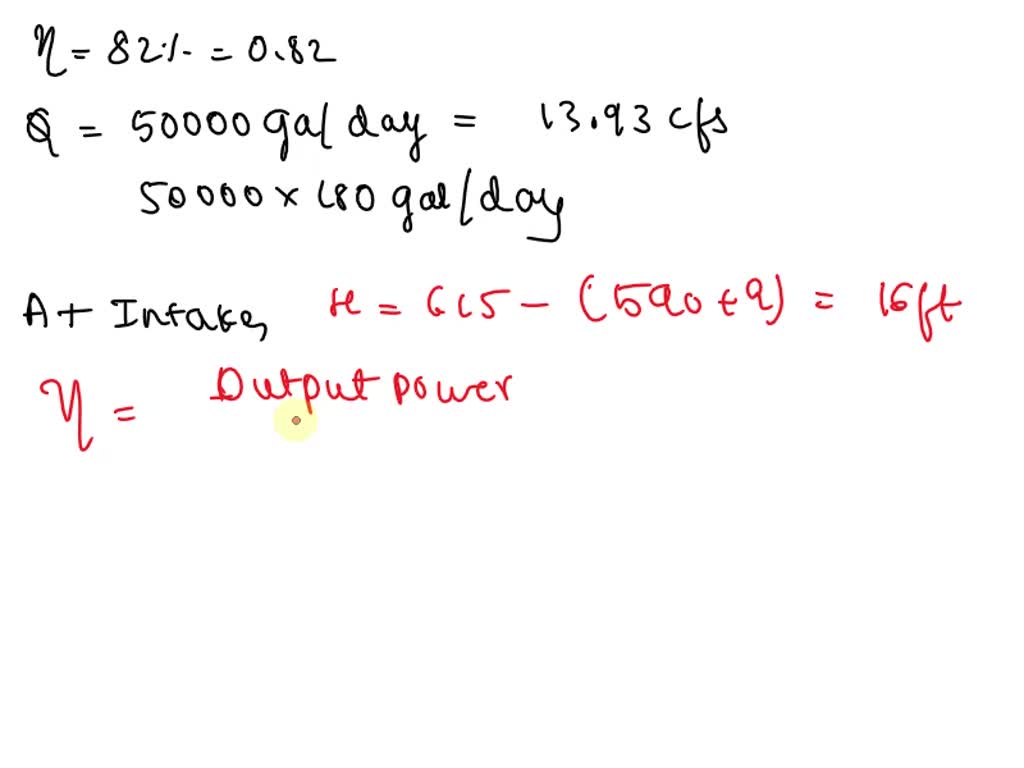 η = 82% = 0.82
Q = 50000 gal day = 13.93 cfs
50000 × 180 gal/day
At Intake, H = 615 - (590 + 9) = 16ft
η = Output power